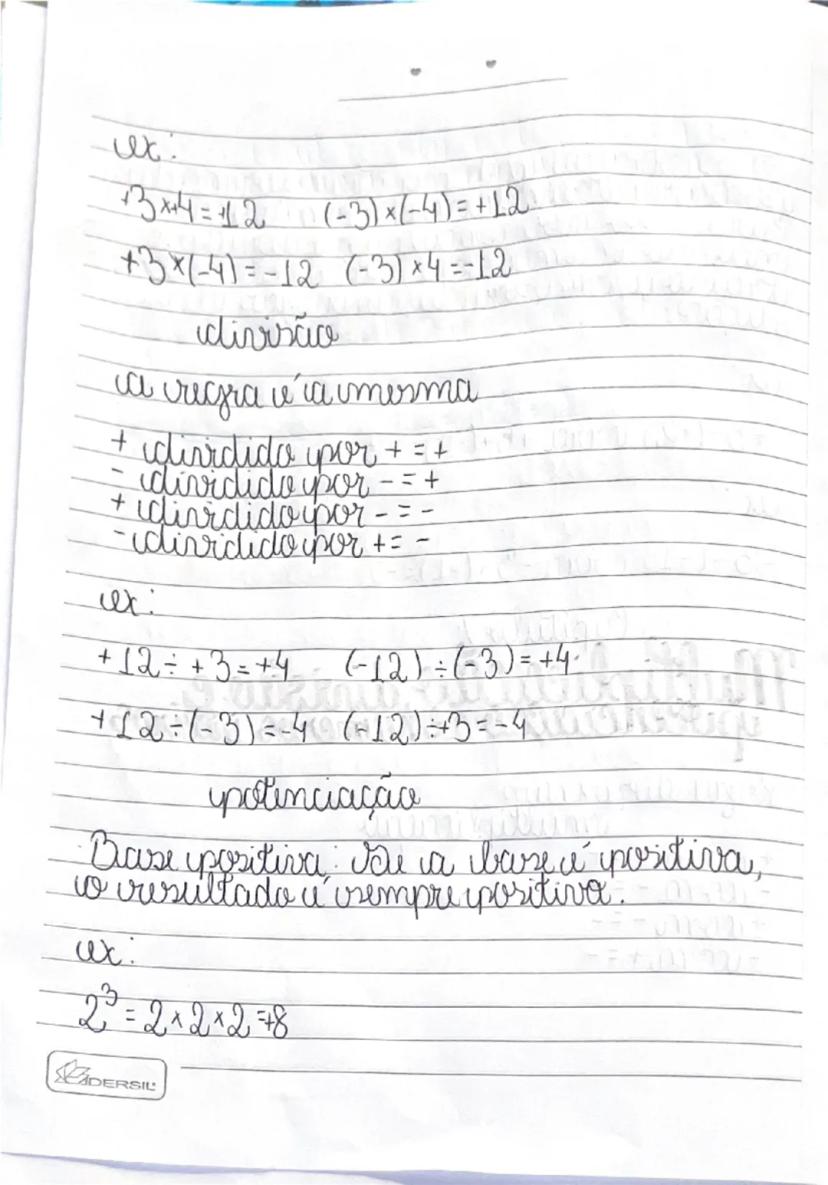 ex:
+3×+4=+12 (-3)×(-4)=+12
+3×(-4)=-12 (-3)×4=-12
divisão
a regra é a mesma
+ dividido por + = +
- dividido por - = +
+ dividido por - = -
- dividido por + = -
ex:
+12÷+3=+4 (-12)÷(-3)=+4
+12÷(-3)=-4 (-12)÷+3=-4
potenciação
Base positiva: Se a base é positiva,
o resultado é sempre positivo.
ex:
2³=2×2×2=+8
DERSIL